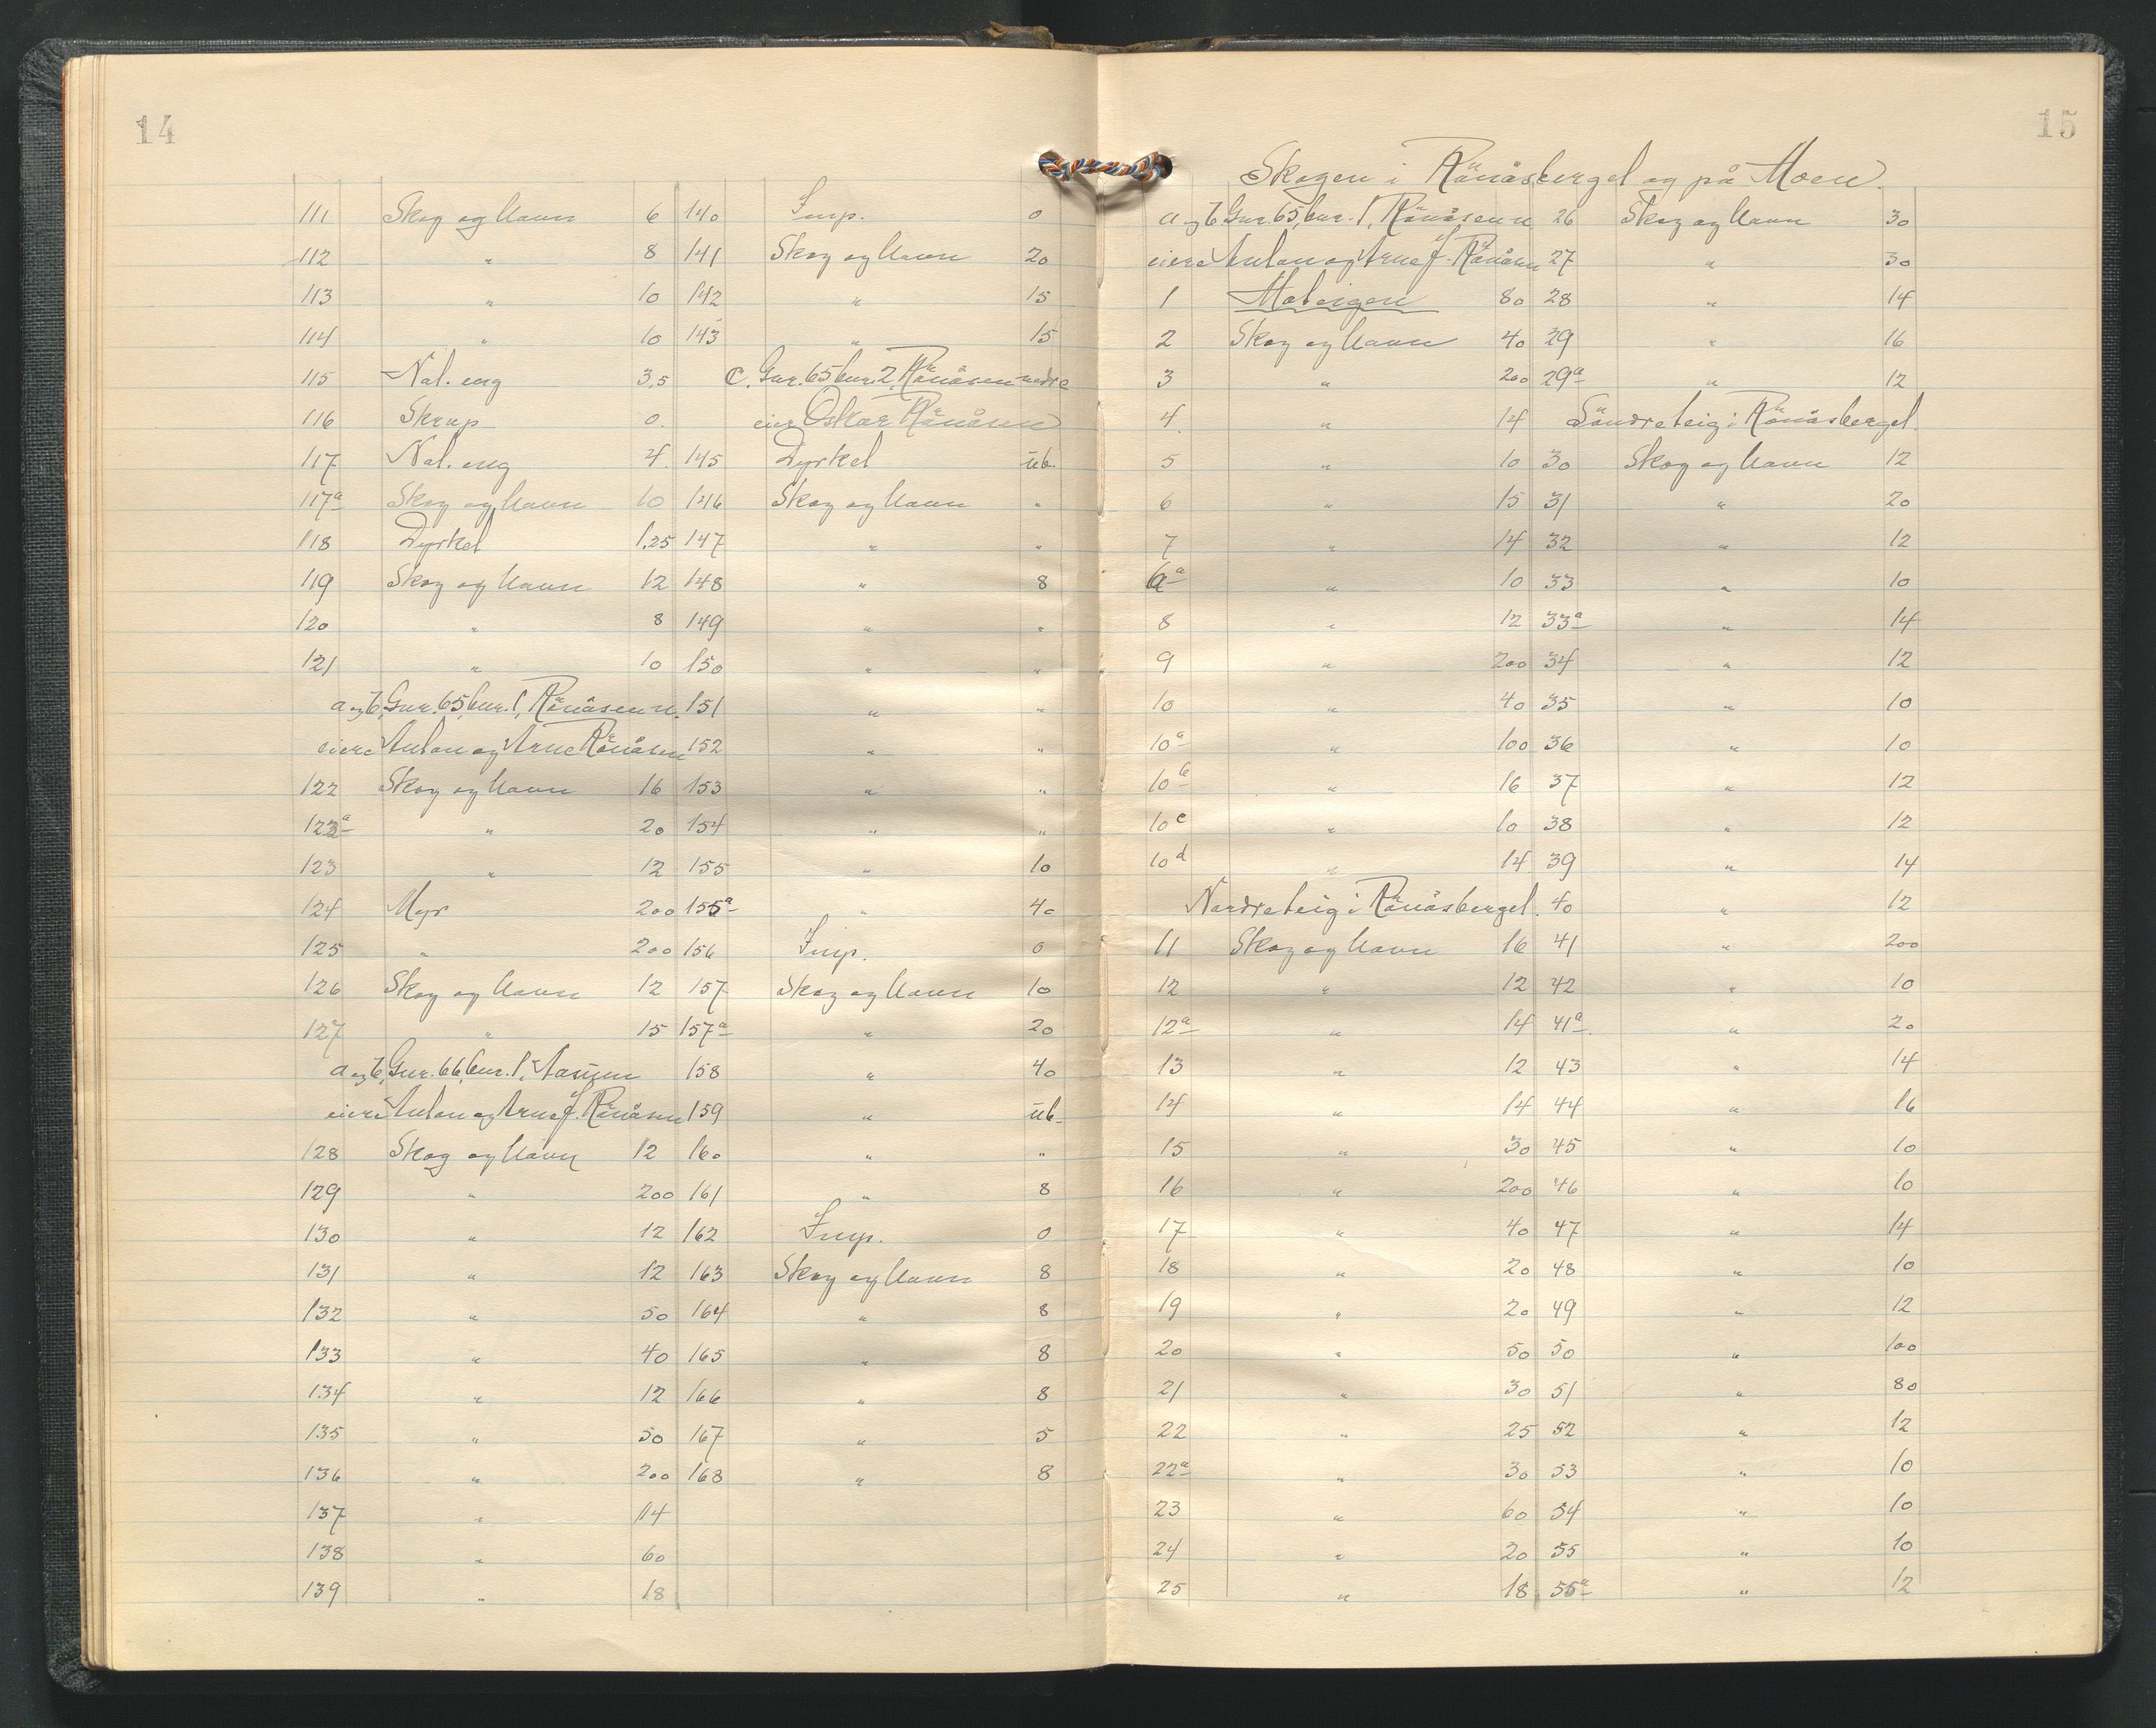 14
111 Skog og havn 6
112 " 8
113 " 10
114 " 10
115 Nat. eng 3,5
116 Skrap 0.
117 Nat. eng 4.
117a Skog og havn 10
118 Dyrket 1,25
119 Skog og havn 12
120 " 8
121 " 10
a og b, Gnr. 65, bnr. 1, Rönåsen n.
eiere Anton og Arne Rönåsen
122 Skog og havn 16
122a " 20
123 " 12
124 Myr 200
125 " 200
126 Skog og havn 12
127 " 15
a og b, Gnr. 66, bnr. 1,
eiere Anton og Arne J. Rönåsen
128 Skog og havn 12
129 " 200
130 " 12
131 " 12
132 " 50
133 " 40
134 " 12
135 " 50
136 " 200
137 " 14
138 " 60
139 " 18
140 Imp. 0
141 Skog og havn 20
142 " 15
143 " 15
c. Gnr. 65 bnr. 2, Rönåsen nedre
eier Oskar Rönåsen
145 Dyrket üb.
146 Skog og havn "
147 " "
148 " 8
149 " "
150 " "
151 " "
152 " "
153 " "
154 " "
155 " 10
155a " 40
156 Imp. 0
157 Skog og havn 10
157a " 20
158 " 40
159 " üb.
160 " "
161 " 8
162 Imp. 0
163 Skog og havn 8
164 " 8
165 " 8
166 " 8
167 " 5
168 " 8
15
Skogen i Rönåsberget og på Moen.
a og b, Gnr. 65, bnr. 1, Rönåsen n.
eiere Anton og Arne J. Rönåsen
1 Moteigen 80
2 Skog og havn 40
3 " 200
4. " 14
5 " 10
6 " 15
7 " 14
6a " 10
8 " 12
9 " 200
10 " 40
10a " 100
10b " 16
10c " 10
10d " 14
Nordre teig i Rönåsberget.
11 Skog og havn 16
12 " 12
12a " 14
13 " 12
14 " 14
15 " 30
16 " 200
17 " 40
18 " 20
19 " 20
20 " 50
21 " 30
22 " 25
22a " 30
23 " 60
24 " 20
25 " 18
26 Skog og havn 30
27 " 30
28 " 14
29 " 16
29a " 12
Söndre teig i Rönåsberget.
30 Skog og havn 12
31 " 20
32 " 12
33 " 10
33a " 14
34 " 12
35 " 10
36 " 10
37 " 12
38 " 12
39 " 14
40 " 12
41 " 200
42 " 10
41a " 20
43 " 14
44 " 16
45 " 10
46 " 10
47 " 14
48 " 10
49 " 12
50 " 100
51 " 80
52 " 12
53 " 10
54 " 10
55 " 10
55a " 12